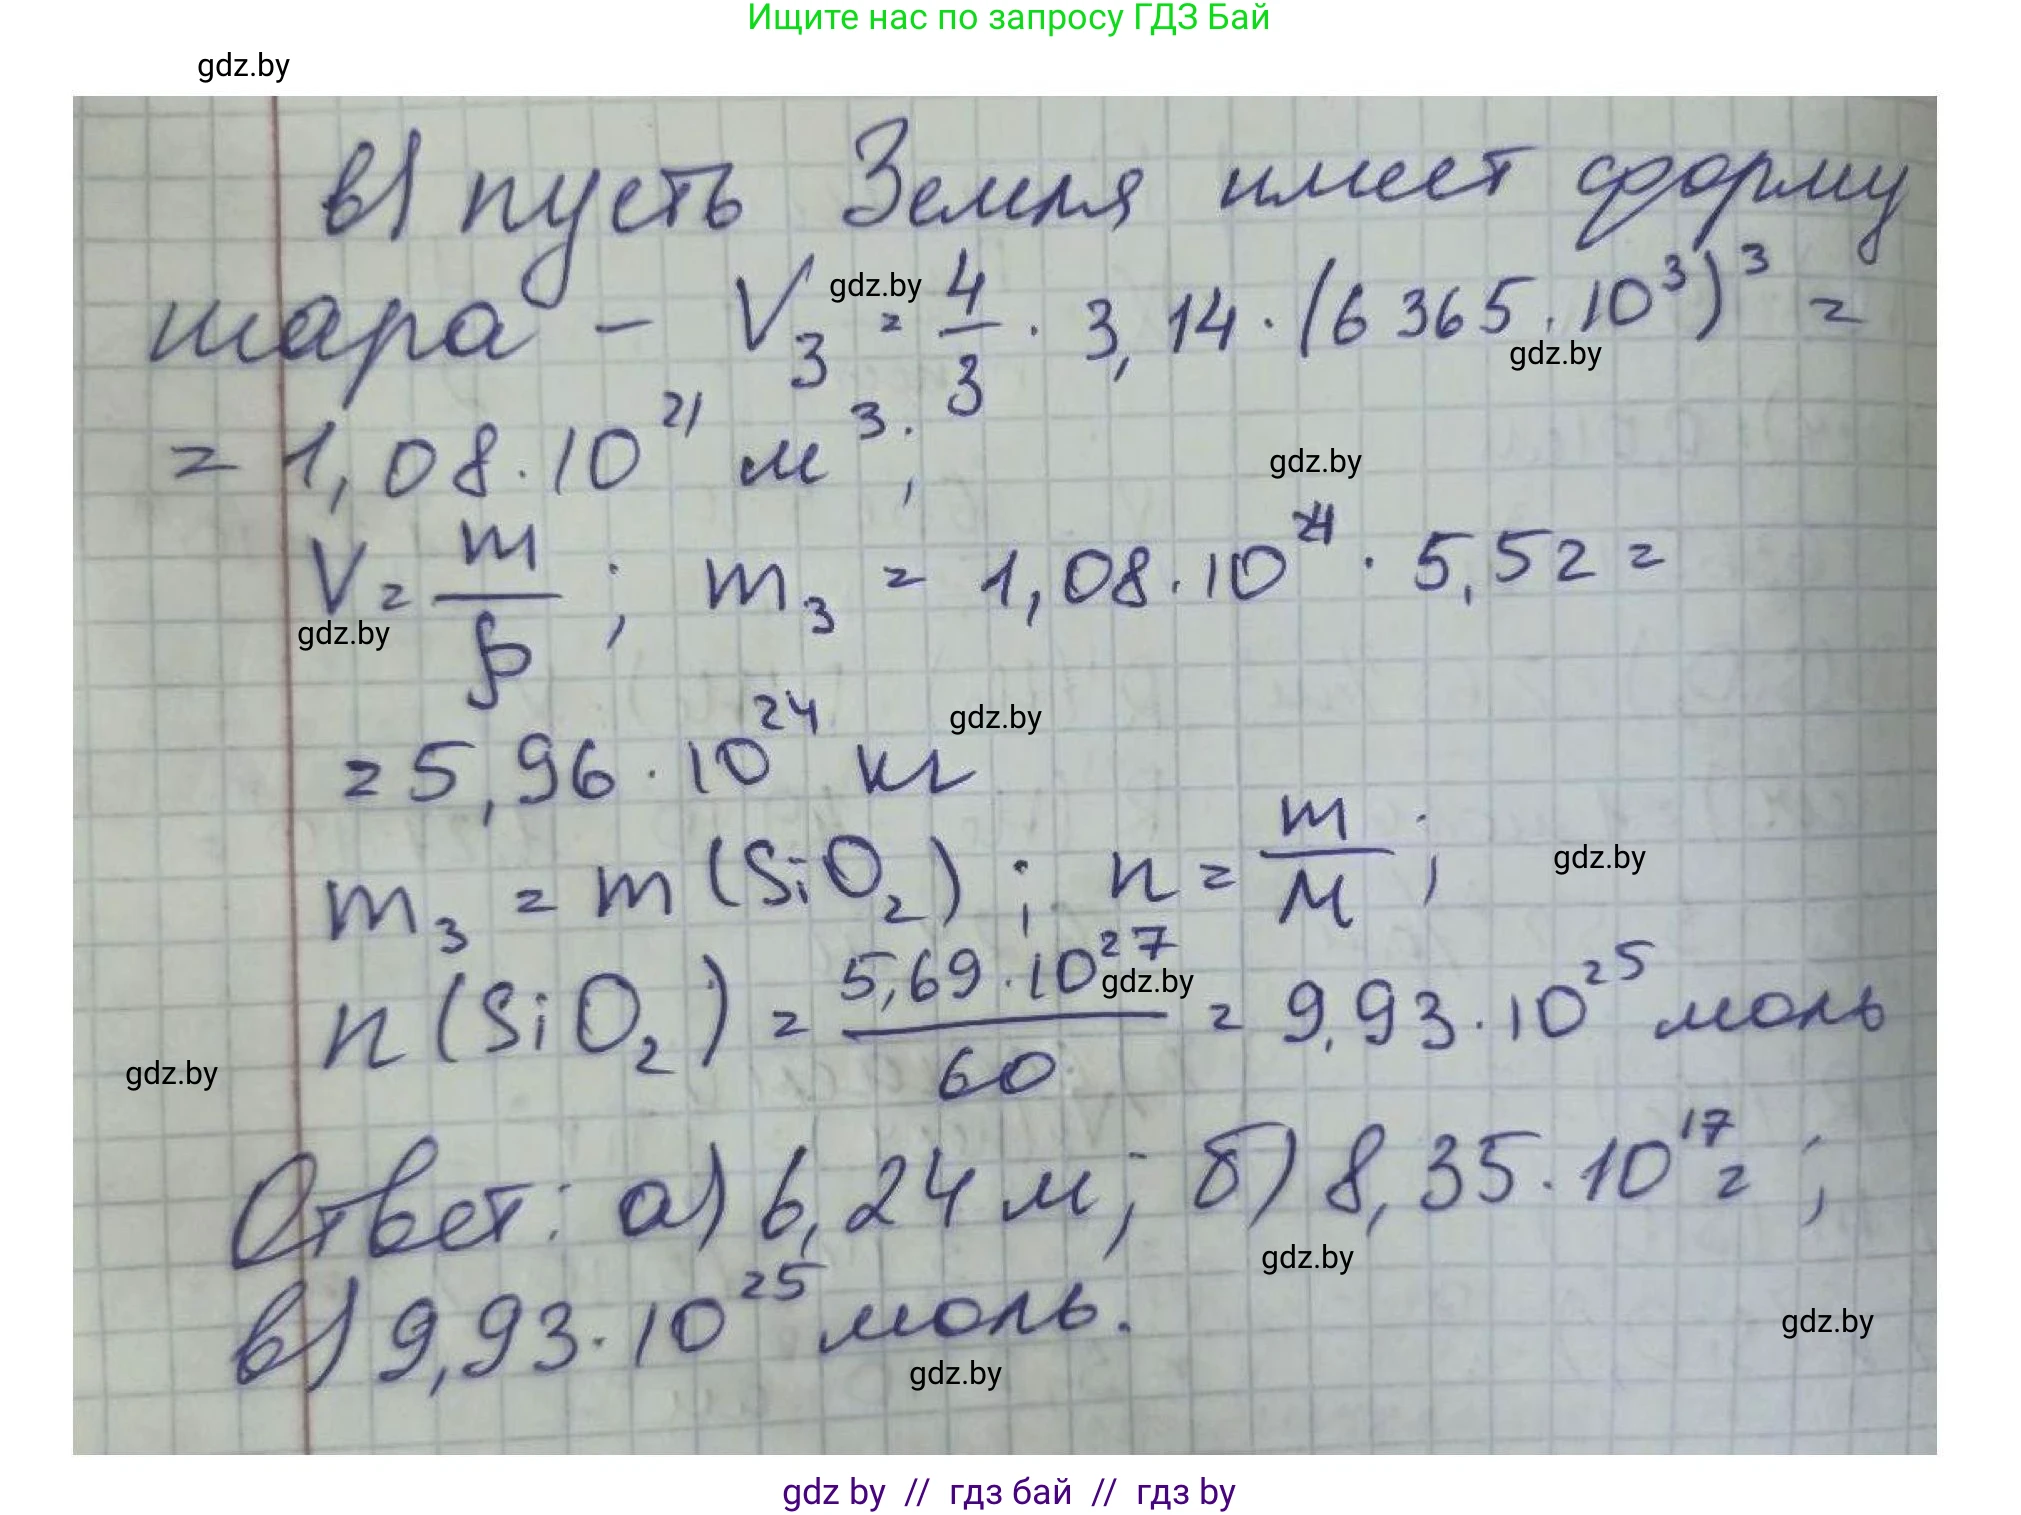 Ищите нас по запросу ГДЗ Бай
gdz.by
в) пусть Земля имеет форму
шара – V₃ = 4/3 · 3,14 · (6365 · 10³)³ =
gdz.by
gdz.by
= 1,08 · 10²¹ м³;
gdz.by
V = m/ρ; m₃ = 1,08 · 10²¹ · 5,52 =
gdz.by
= 5,96 · 10²⁴ кг
gdz.by
m₃ = m(SiO₂); n = m/M;
gdz.by
n(SiO₂) = 5,69 · 10²⁷/60 = 9,93 · 10²⁵ моль
gdz.by
gdz.by
Ответ: а) 6,24 м; б) 8,35 · 10¹⁷ г;
gdz.by
в) 9,93 · 10²⁵ моль.
gdz.by
gdz.by
gdz by // гдз бай // гдз by